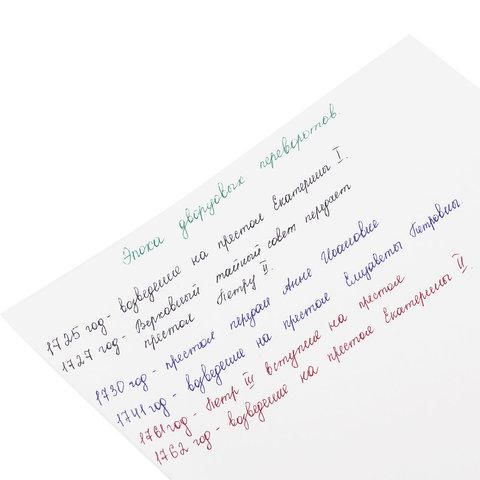 Эпоха дворцовых переворотов.
1725 год - возведение на престол Екатерины I.
1727 год - Верховный тайный совет передает
престол Петру II.
1730 год - престол передан Анне Иоановне
1741 год - возведение на престол Елизаветы Петровны
1761 год - Петр III вступил на престол
1762 год - возведение на престол Екатерины II.